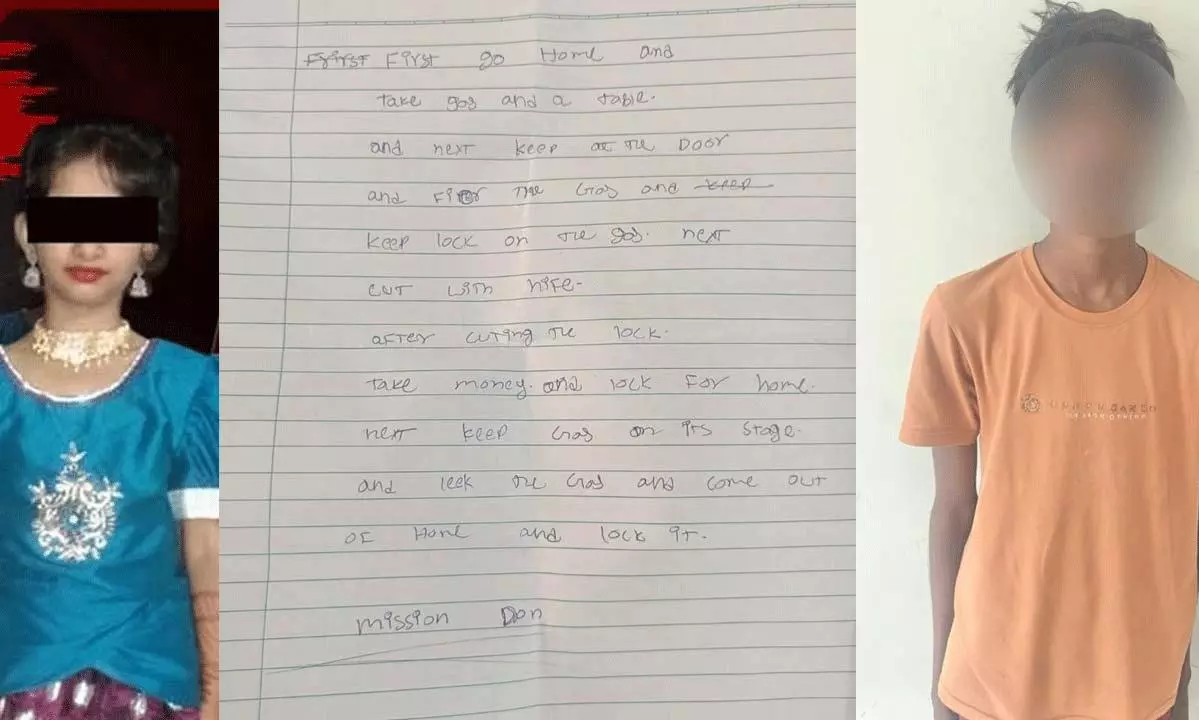 First First go Home and
take gas and a table.
and next keep at the Door
and the Gas and keep
keep lock on the gas. next
cut with nife.
after cuting the lock.
take money. and lock for home.
next keep Gas on its stage.
and leek the Gas and come out
of Home and lock it.
mission Don